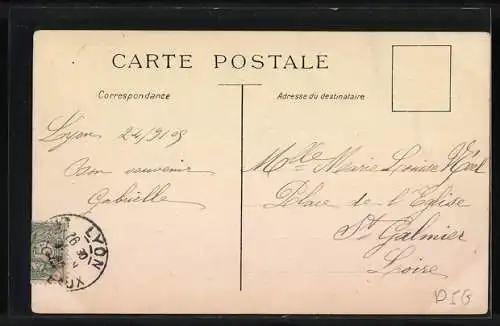 CARTE POSTALE
Correspondance
Adresse du destinataire
Lyon 24/9/05
Bon souvenir
Gabrielle
Mlle Marie Louise
Place de l'Eglise
St Galmier
Loire
LYON